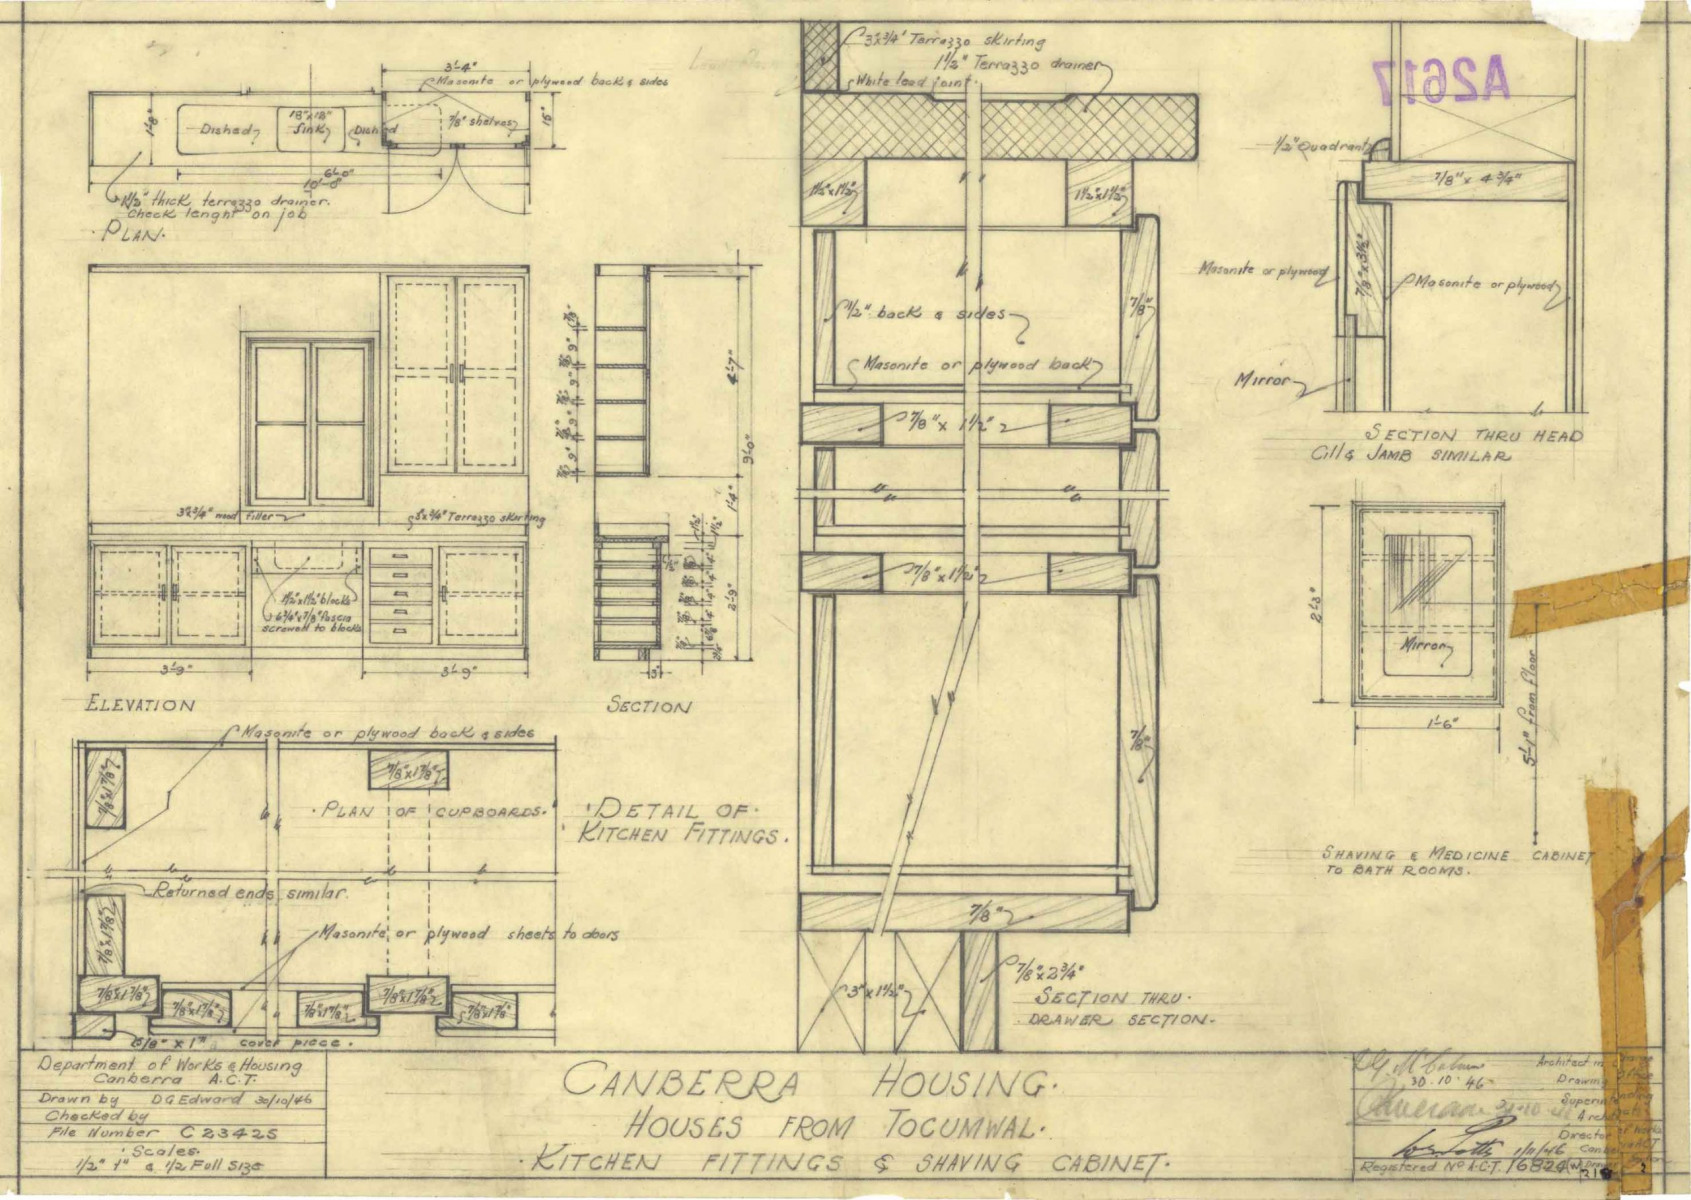 3'-4"
Masonite or plywood back & sides
1'-8"
Dished
18"x18"
Sink
Dished
7/8" shelves
15"
6'-0"
10'-8"
1½" thick terrazzo drainer.
Check lenght on job
PLAN.
3"x¾" wood filler
3"x¾" Terrazzo skirting
1½"x1½" blocks
6¾"x7/8" fascia
screwed to blocks
3'-9"
3'-9"
ELEVATION
9"
9"
9"
9"
4'-7"
9'-0"
1'-4"
2'-9"
3"
SECTION
Masonite or plywood back & sides
7/8"x1 7/8"
7/8"x1 7/8"
PLAN OF CUPBOARDS.
Returned ends similar.
7/8"x1 7/8"
Masonite or plywood sheets to doors
7/8"x1 7/8"
7/8"x1 7/8"
7/8"x1 7/8"
7/8"x1 7/8"
7/8"x1 7/8"
5/8" x 1" cover piece.
DETAIL OF
KITCHEN FITTINGS.
3"x¾" Terrazzo skirting
1½" Terrazzo drainer
White lead joint.
1½"x1½"
1½"x1½"
½" back & sides
7/8"
Masonite or plywood back
7/8" x 1½"
7/8"x1½"
7/8"
7/8"
3"x1½"
7/8"x2¾"
SECTION THRU.
DRAWER SECTION.
A2617
½" Quadrant
7/8" x 4¾"
Masonite or plywood
7/8"x3½"
Masonite or plywood
Mirror
SECTION THRU HEAD
Cill & JAMB SIMILAR
2'-3"
Mirror
1'-6"
5'-1" from floor
SHAVING & MEDICINE CABINET
TO BATH ROOMS.
Department of Works & Housing
Canberra A.C.T.
Drawn by DG Edward 30/10/46
Checked by
File Number C23425
Scales.
1/2" 1" & 1/2 Full Size
CANBERRA HOUSING.
HOUSES FROM TOCUMWAL.
KITCHEN FITTINGS & SHAVING CABINET.
30.10.46
Architect in
Drawing
Architect
Director of Works
1/11/46
Registered No A.C.T. 16824